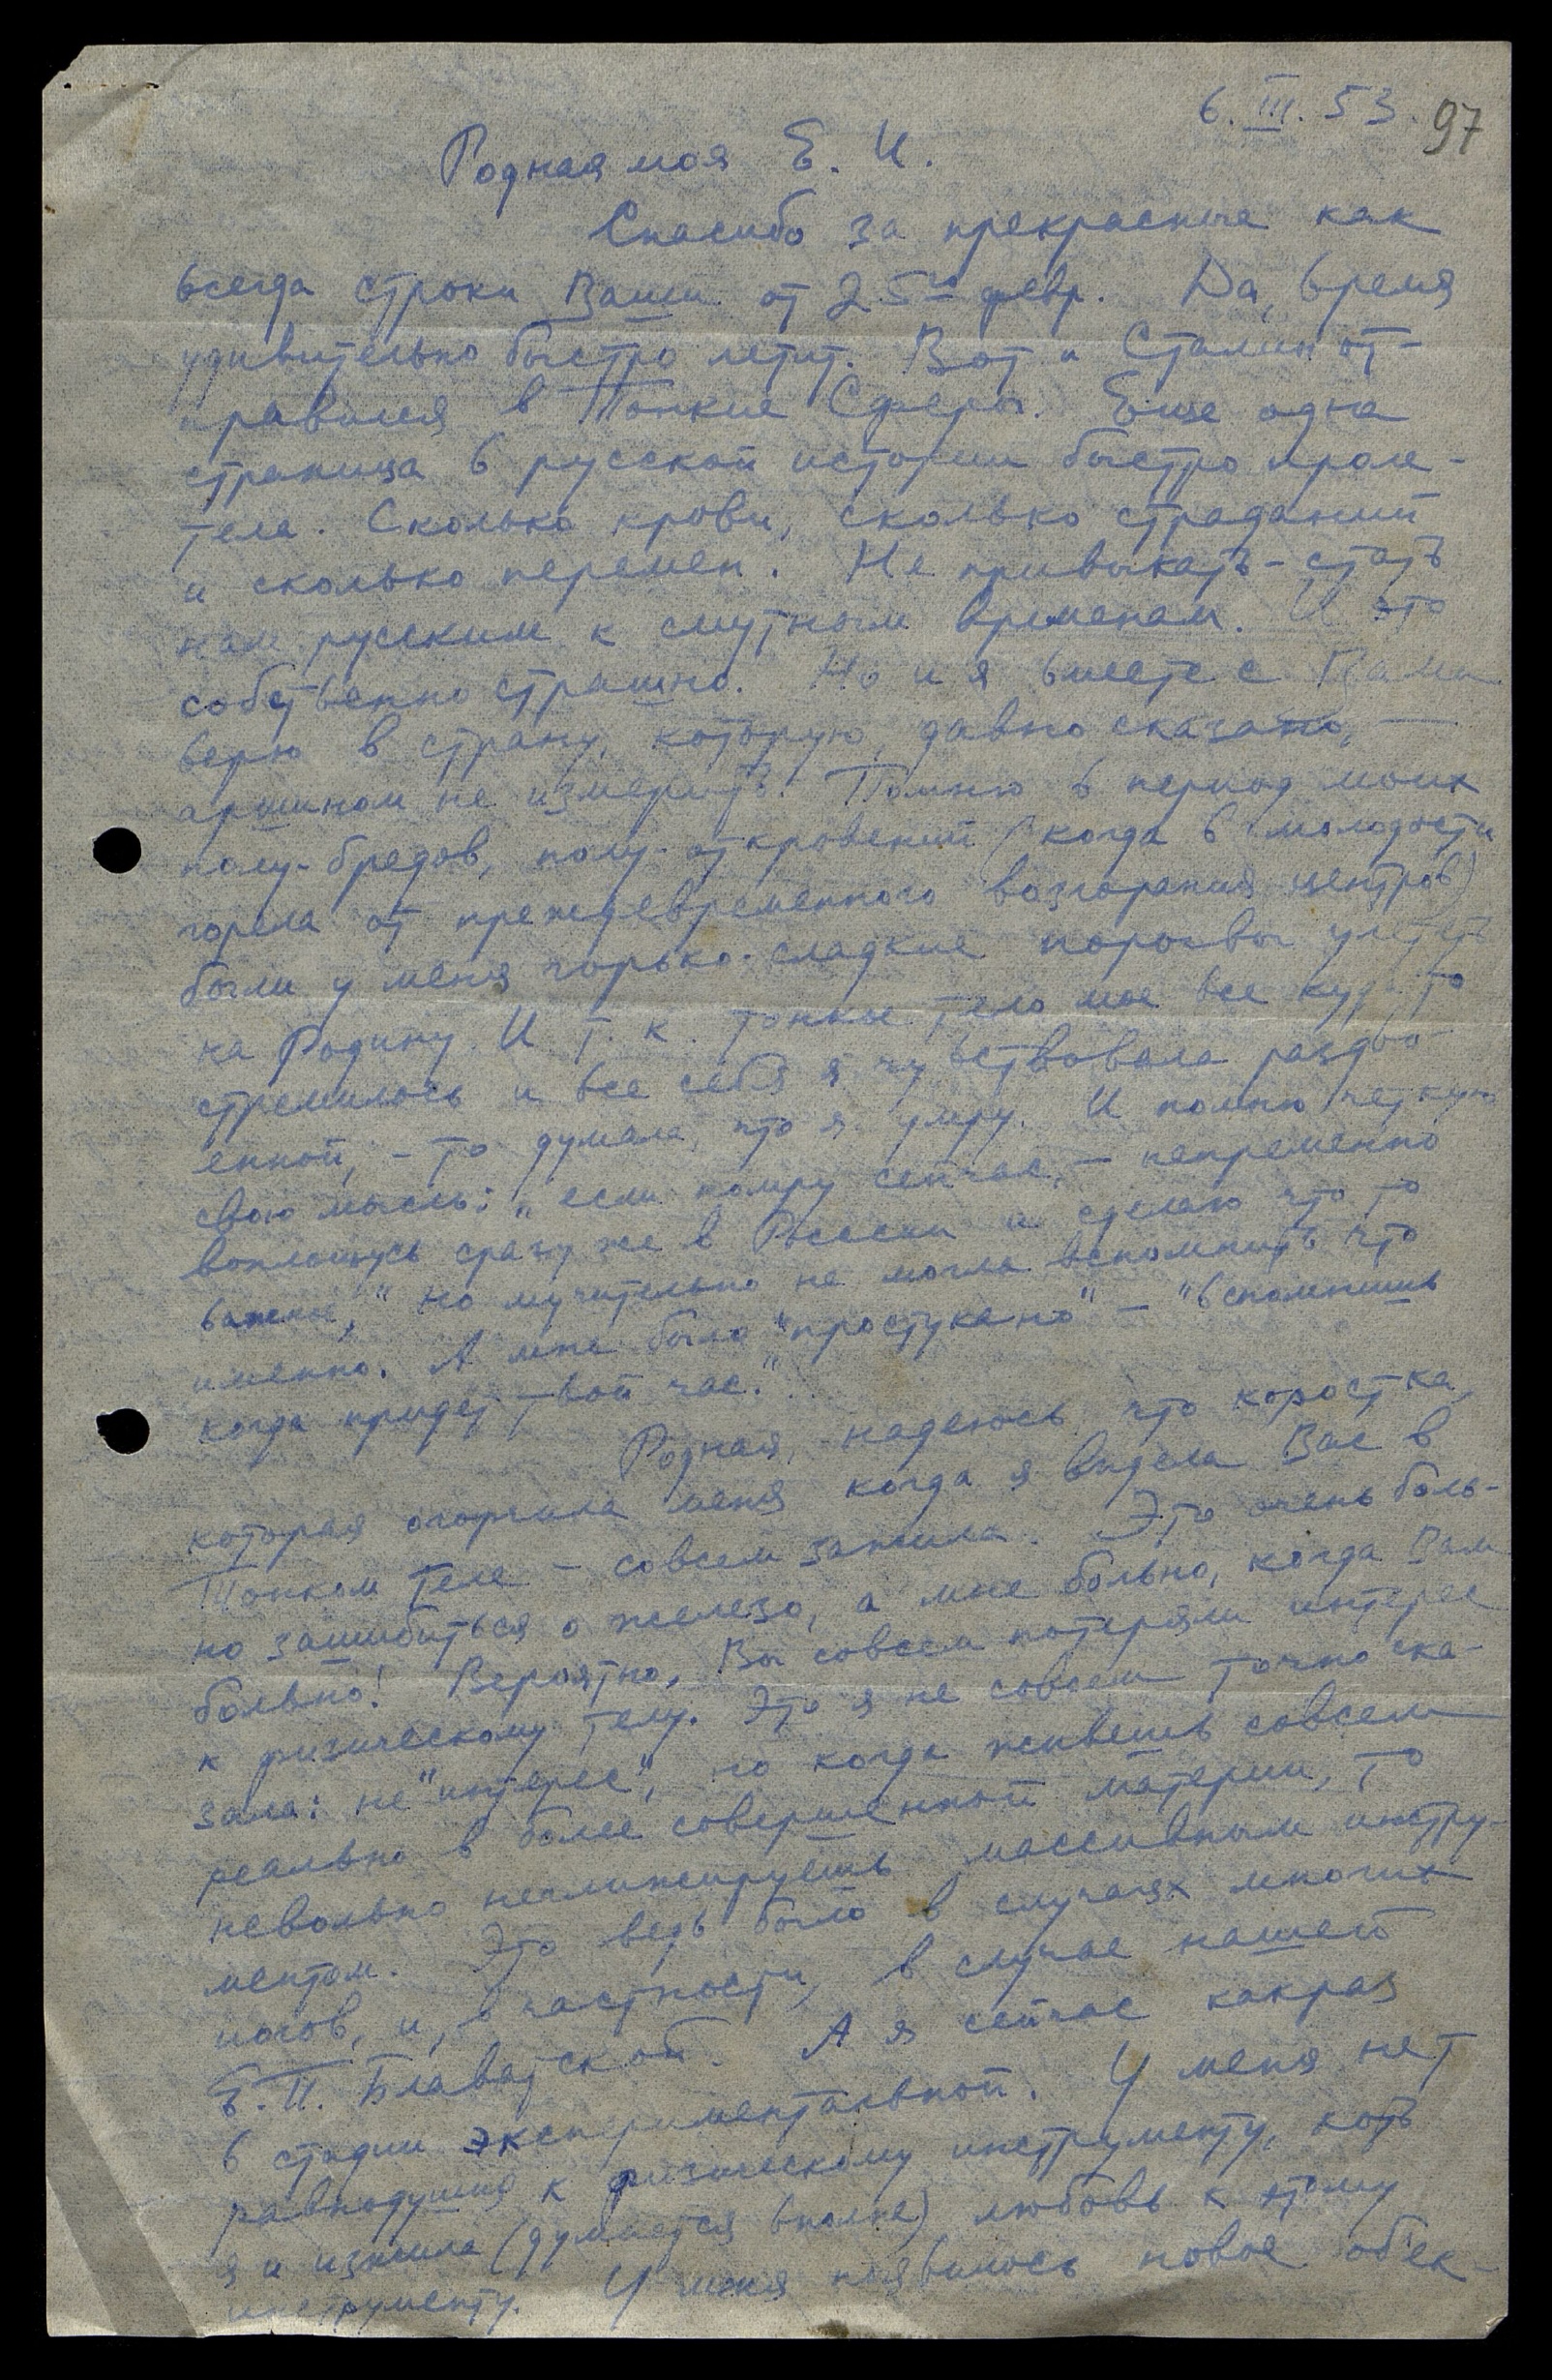 6. III. 53.
97
Родная моя Е. И.
Спасибо за прекрасные как
всегда строки Ваши от 25го февр. Да, время
удивительно быстро летит. Вот и Сталин от-
правился в Тонкие Сферы. Еще одна
страница в русской истории быстро проле-
тела. Сколько крови, сколько страданий
и сколько перемен. Не привыкать-стать
нам русским к смутным временам. И это
собственно страшно. Но и я вместе с Вами
верю в страну, которую, давно сказано, —
аршином не измерить. Помню в период моих
полу-бредов, полу-откровений (когда в молодости
горела от преждевременного возгорания центров)
были у меня горько-сладкие порывы улететь
на Родину. И т. к. тонкое тело мое все куда то
стремилось и все себя я чувствовала раздво-
енной, - то думала, что я умру. И помню четкую
свою мысль: „если помру сейчас, - непременно
воплощусь сразу же в России и сделаю что то
важное," но мучительно не могла вспомнить что
именно. А мне было "простукано" - "вспомнишь
когда придет твой час."
Родная, надеюсь что коростка,
которая огорчила меня когда я видела Вас в
Тонком теле - совсем зажила. Это очень боль-
но зашибиться о железо, а мне больно, когда Вам
больно! Вероятно, Вы совсем потеряли интерес
к физическому телу. Это я не совсем точно ска-
зала: не "интерес", но когда живешь совсем
реально в более совершенной материи, то
невольно неглижируешь массивным инстру-
ментом. Это ведь было в случаях многих
иогов, и, в частности, в случае нашей
Е. П. Блаватской. А я сейчас какраз
в стадии экспериментальной. У меня нет
равнодушия к физическому инструменту, хоть
я и изжила (думается вполне) любовь к этому
инструменту. У меня появилось новое об'ек-